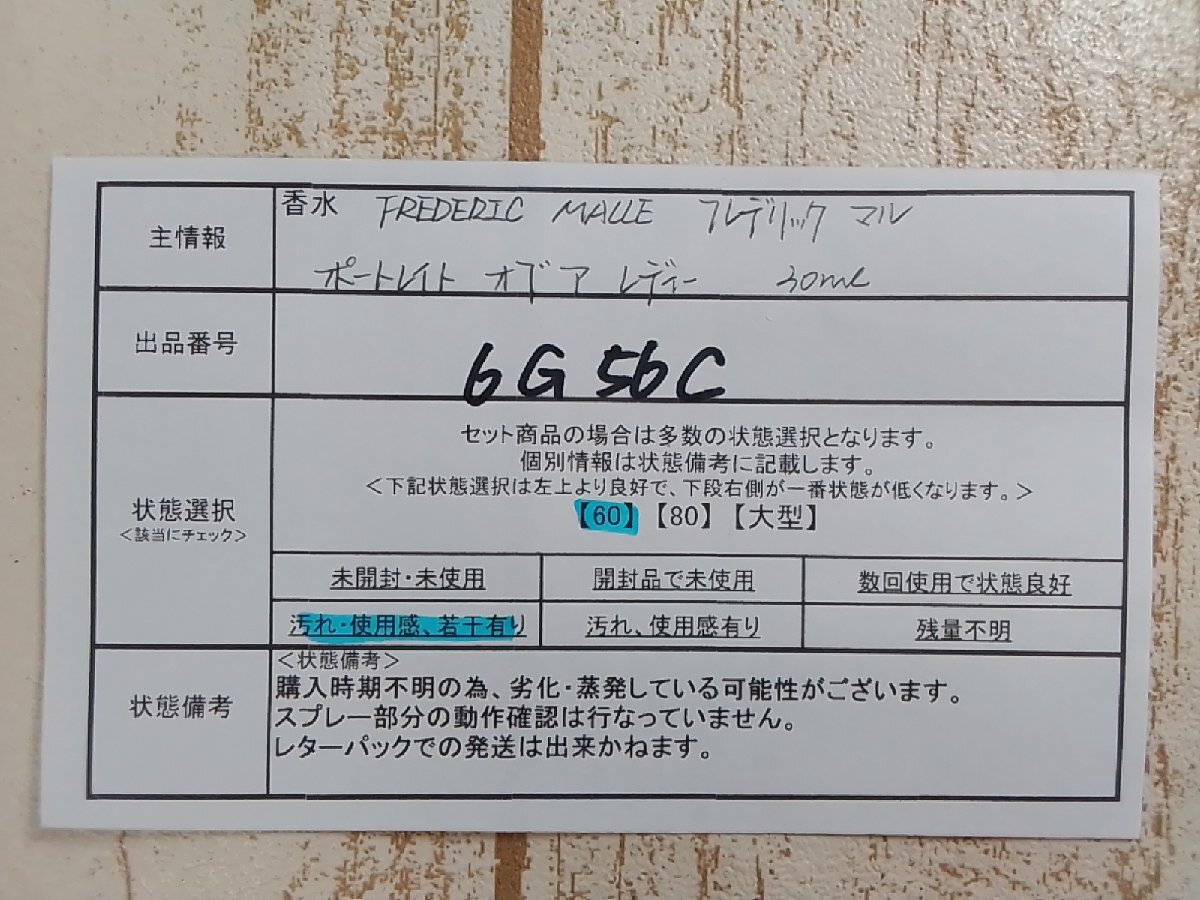 主情報
香水 FREDERIC MALLE フレデリック マル
ポートレイト オブ ア レディー 30ml
出品番号
6G56C
状態選択
<該当にチェック>
セット商品の場合は多数の状態選択となります。
個別情報は状態備考に記載します。
<下記状態選択は左上より良好で、下段右側が一番状態が低くなります。>
【60】【80】【大型】
未開封・未使用 開封品で未使用 数回使用で状態良好
汚れ・使用感、若干有り 汚れ、使用感有り 残量不明
状態備考
<状態備考>
購入時期不明の為、劣化・蒸発している可能性がございます。
スプレー部分の動作確認は行なっていません。
レターパックでの発送は出来かねます。